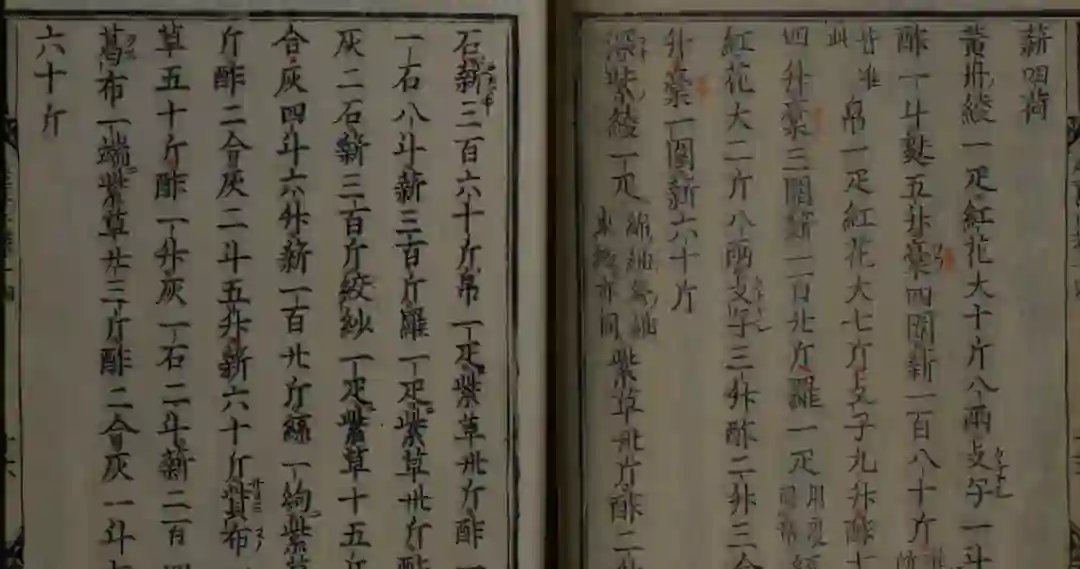 薪四荷
黄丹綾一疋紅花大十斤八両支子一斗
酢一斗麩五升藁四囲薪一百八十斤
帛一疋紅花大七斤支子九升酢七
四升藁三囲薪一百廿斤羅一疋
紅花大二斤八両支子三升酢二升三合
升藁一囲薪六十斤
深紫綾一疋綿紬絲紬東絁亦同紫草卅斤酢二升
石薪三百六十斤帛一疋紫草卅斤酢一
一石八斗薪三百斤羅一疋紫草卅斤酢
灰二石薪三百斤絞紗一疋紫草十五斤
合灰四斗六升薪一百廿斤絲一絇紫草
斤酢二合灰二斗五升薪六十斤貲布
草五十斤酢一升灰一石二斗薪二百四
葛布一端紫草廿三斤酢二合灰一斗七
六十斤